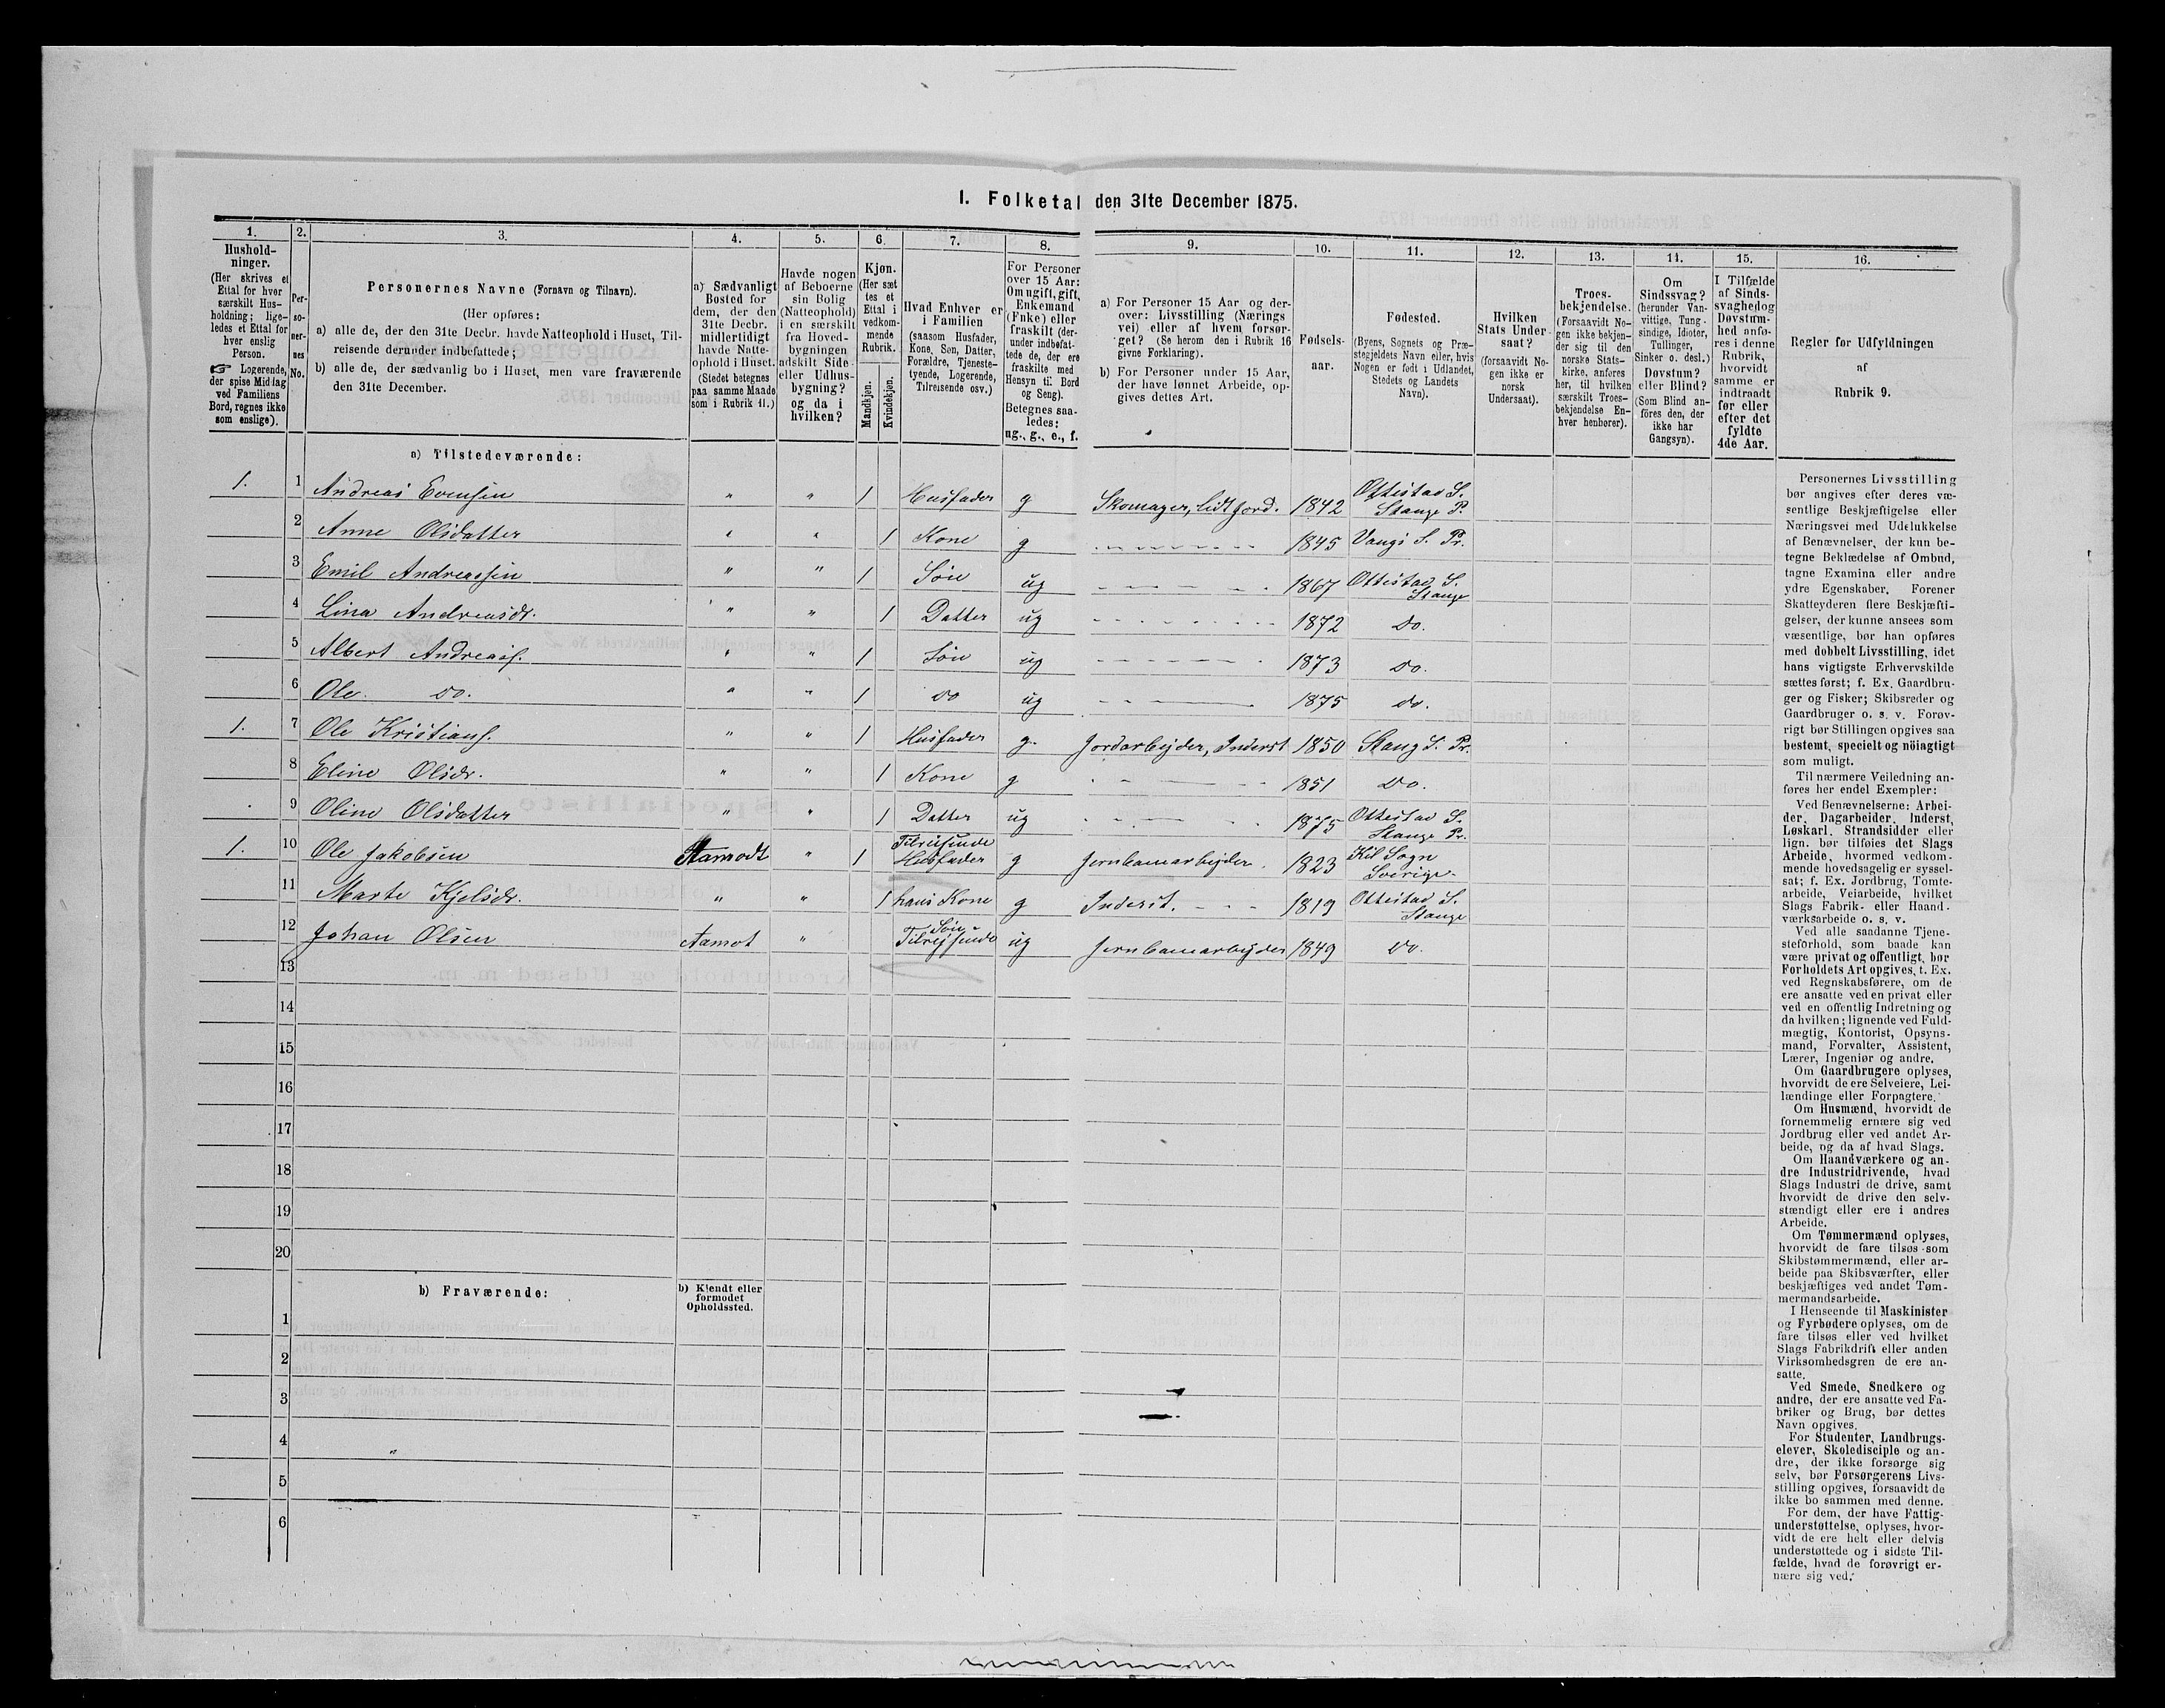 1. Folketal den 31te December 1875.
1.
2.
3.
4.
5.
6.
7.
8.
9.
10.
11.
12.
13.
14.
15.
16.
Hushold-
ninger.
(Her skrives et
Ettal for hver
særskilt Hus-
holdning; lige-
ledes et Ettal for
hver enslig
Person.
☞ Logerende,
der spise Middag
ved Familiens
Bord, regnes ikke
som enslige).
Per-
so-
ner-
nes
No.
Personernes Navne (Fornavn og Tilnavn).
(Her opføres:
a) alle de, der den 31te Decbr. havde Natteophold i Huset, Til-
reisende derunder indbefattede;
b) alle de, der sædvanlig bo i Huset, men vare fraværende
den 31te December.
a) Sædvanligt
Bosted for
dem, der den
31te Decbr.
midlertidigt
havde Natte-
ophold i Huset.
(Stedet betegnes
paa samme Maade
som i Rubrik 11.)
Havde nogen
af Beboerne
sin Bolig
(Natteophold)
i en særskilt
fra Hoved-
bygningen
adskilt Side-
eller Udhus-
bygning?
og da i
hvilken?
Kjøn.
(Her sæt
tes et
Ettal i
vedkom-
mende
Rubrik.
Mandkjøn.
Kvindekjøn.
Hvad Enhver er
i Familien
(saasom Husfader,
Kone, Søn, Datter,
Forældre, Tjeneste-
tyende, Logerende,
Tilreisende osv.)
For Personer
over 15 Aar:
Om ugift, gift,
Enkemand
(Enke) eller
fraskilt (der-
under indbefat-
tede de, der ere
fraskilte med
Hensyn til Bord
og Seng).
Betegnes saa-
ledes:
ug., g., e., f.
a) For Personer 15 Aar og der-
over: Livsstilling (Nærings
vei) eller af hvem forsør-
get? (Se herom den i Rubrik 16
givne Forklaring).
b) For Personer under 15 Aar,
der have lønnet Arbeide, op-
gives dettes Art.
Fødsels-
aar.
Fødested.
(Byens, Sognets og Præ-
stegjeldets Navn eller, hvis
Nogen er født i Udlandet,
Stedets og Landets
Navn).
Hvilken
Stats Under-
saat?
(forsaavidt No-
gen ikke er
norsk
Undersaat).
Troes-
bekjendelse.
(Forsaavidt No-
gen ikke bekjen-
der sig til den
norske Stats-
kirke, anføres
her, til hvilken
særskilt Troes-
bekjendelse En-
hver henhører).
Om
Sindssvag?
(herunder Van-
vittige, Tung-
sindige, Idioter,
Tullinger,
Sinker o. desl.)
Døvstum?
eller Blind?
(Som Blind an-
føres den, der
ikke har
Gangsyn).
I Tilfælde
af Sinds-
svaghed og
Døvstum-
hed anfø-
res i denne
Rubrik,
hvorvidt
samme er
indtraadt
før eller
efter det
fyldte
4de Aar.
Regler for Udfyldningen
af
Rubrik 9.
a) Tilstedeværende:
1. 1 Andreas Evensen " " 1 Husfader g Skomager, lidt Jord. 1842 Ottestad S. Stange P.
2 Anne Olsdatter " " 1 Kone g 1845 Vangs S. Pr.
3 Emil Andreassen " " 1 Søn ug 1867 Ottestad S. Stange
4 Lina Andreasdr. " " 1 Datter ug 1872 Do.
5 Albert Andreass. " " 1 Søn ug 1873 do.
6 Ole do. " " 1 do ug 1875 do.
1. 7 Ole Kristians. " " 1 Husfader g. Jordarbejder, Inderst 1850 Stang S. Pr.
8 Eline Olsdr. " " 1 Kone g 1851 Do.
9 Oline Olsdatter " " 1 Datter ug 1875 Ottestad S. Stange Pr.
1. 10 Ole Jakobsen Aamodt " 1 Tilreisende Husfader g Jernbanearbejder. 1823 Kil Sogn Sverige.
11 Marte Kjelsdr. " " 1 hans Kone g Inderst. 1819 Ottestad S. Stange
12 Johan Olsen Aamot " Søn Tilrejsende ug Jernbanearbejder 1849 Do.
13
14
15
16
17
18
19
20
b) Fraværende:
b) Kjendt eller
formodet
Opholdssted.
1
2
3
4 "
5
6
Personernes Livsstilling
bør angives efter deres væ-
sentlige Beskjæftigelse eller
Næringsvei med Udelukkelse
af Benævnelser, der kun be-
tegne Beklædelse af Ombud,
tagne Examina eller andre
ydre Egenskaber. Forener
Skatteyderen flere Beskjæfti-
gelser, der kunne ansees som
væsentlige, bør han opføres
med dobbelt Livsstilling, idet
hans vigtigste Erhvervskilde
sættes først; f. Ex. Gaardbru-
ger og Fisker; Skibsreder og
Gaardbruger o. s. v. Forøv-
rigt bør Stillingen opgives saa
bestemt, specielt og nöiagtigt
som muligt.
Til nærmere Veiledning an-
føres her endel Exempler:
Ved Benævnelserne: Arbei-
der, Dagarbeider, Inderst,
Løskarl, Strandsidder eller
lign. bør tilføies det Slags
Arbeide, hvormed vedkom-
mende hovedsagelig er syssel-
sat; f. Ex. Jordbrug, Tomte-
arbeide, Veiarbeide, hvilket
Slags Fabrik- eller Haand-
værksarbeide o. s. v.
Ved alle saadanne Tjene-
steforhold, som baade kan
være privat og offentligt, bør
Forholdets Art opgives, t. Ex.
ved Regnskabsførere, om de
ere ansatte ved en privat eller
ved en offentlig Indretning og
da hvilken; lignende ved Fuld-
mægtig, Kontorist, Opsyns-
mand, Forvalter, Assistent,
Lærer, Ingeniør og andre.
Om Gaardbrugere oplyses,
hvorvidt de ere Selveiere, Lei-
lændinge eller Forpagtere.
Om Husmænd, hvorvidt de
fornemmelig ernære sig ved
Jordbrug eller ved andet Ar-
beide, og da af hvad Slags.
Om Haandværkere og an-
dre Industridrivende, hvad
Slags Industri de drive, samt
hvorvidt de drive den selv-
stændigt eller ere i andres
Arbeide.
Om Tømmermænd oplyses,
hvorvidt de fare tilsøs som
Skibstømmermænd, eller ar-
beide paa Skibsværfter, eller
beskjæftiges ved andet Tøm-
mermandsarbeide.
I Henseende til Maskinister
og Fyrbødere oplyses, om de
fare tilsøs eller ved hvilket
Slags Fabrikdrift eller anden
Virksomhedsgren de ere an-
satte.
Ved Smede, Snedkere og
andre, der ere ansatte ved Fa-
briker og Brug, bør dettes
Navn opgives.
For Studenter, Landbrugs-
elever, Skoledisciple og an-
dre, der ikke forsørge sig
selv, bør Forsørgerens Livs-
stilling opgives, forsaavidt de
ikke bo sammen med denne.
For dem, der have Fattig-
understøttelse, oplyses, hvor-
vidt de ere helt eller delvis
understøttede og i sidste Til-
fælde, hvad de forøvrigt er-
nære sig ved.